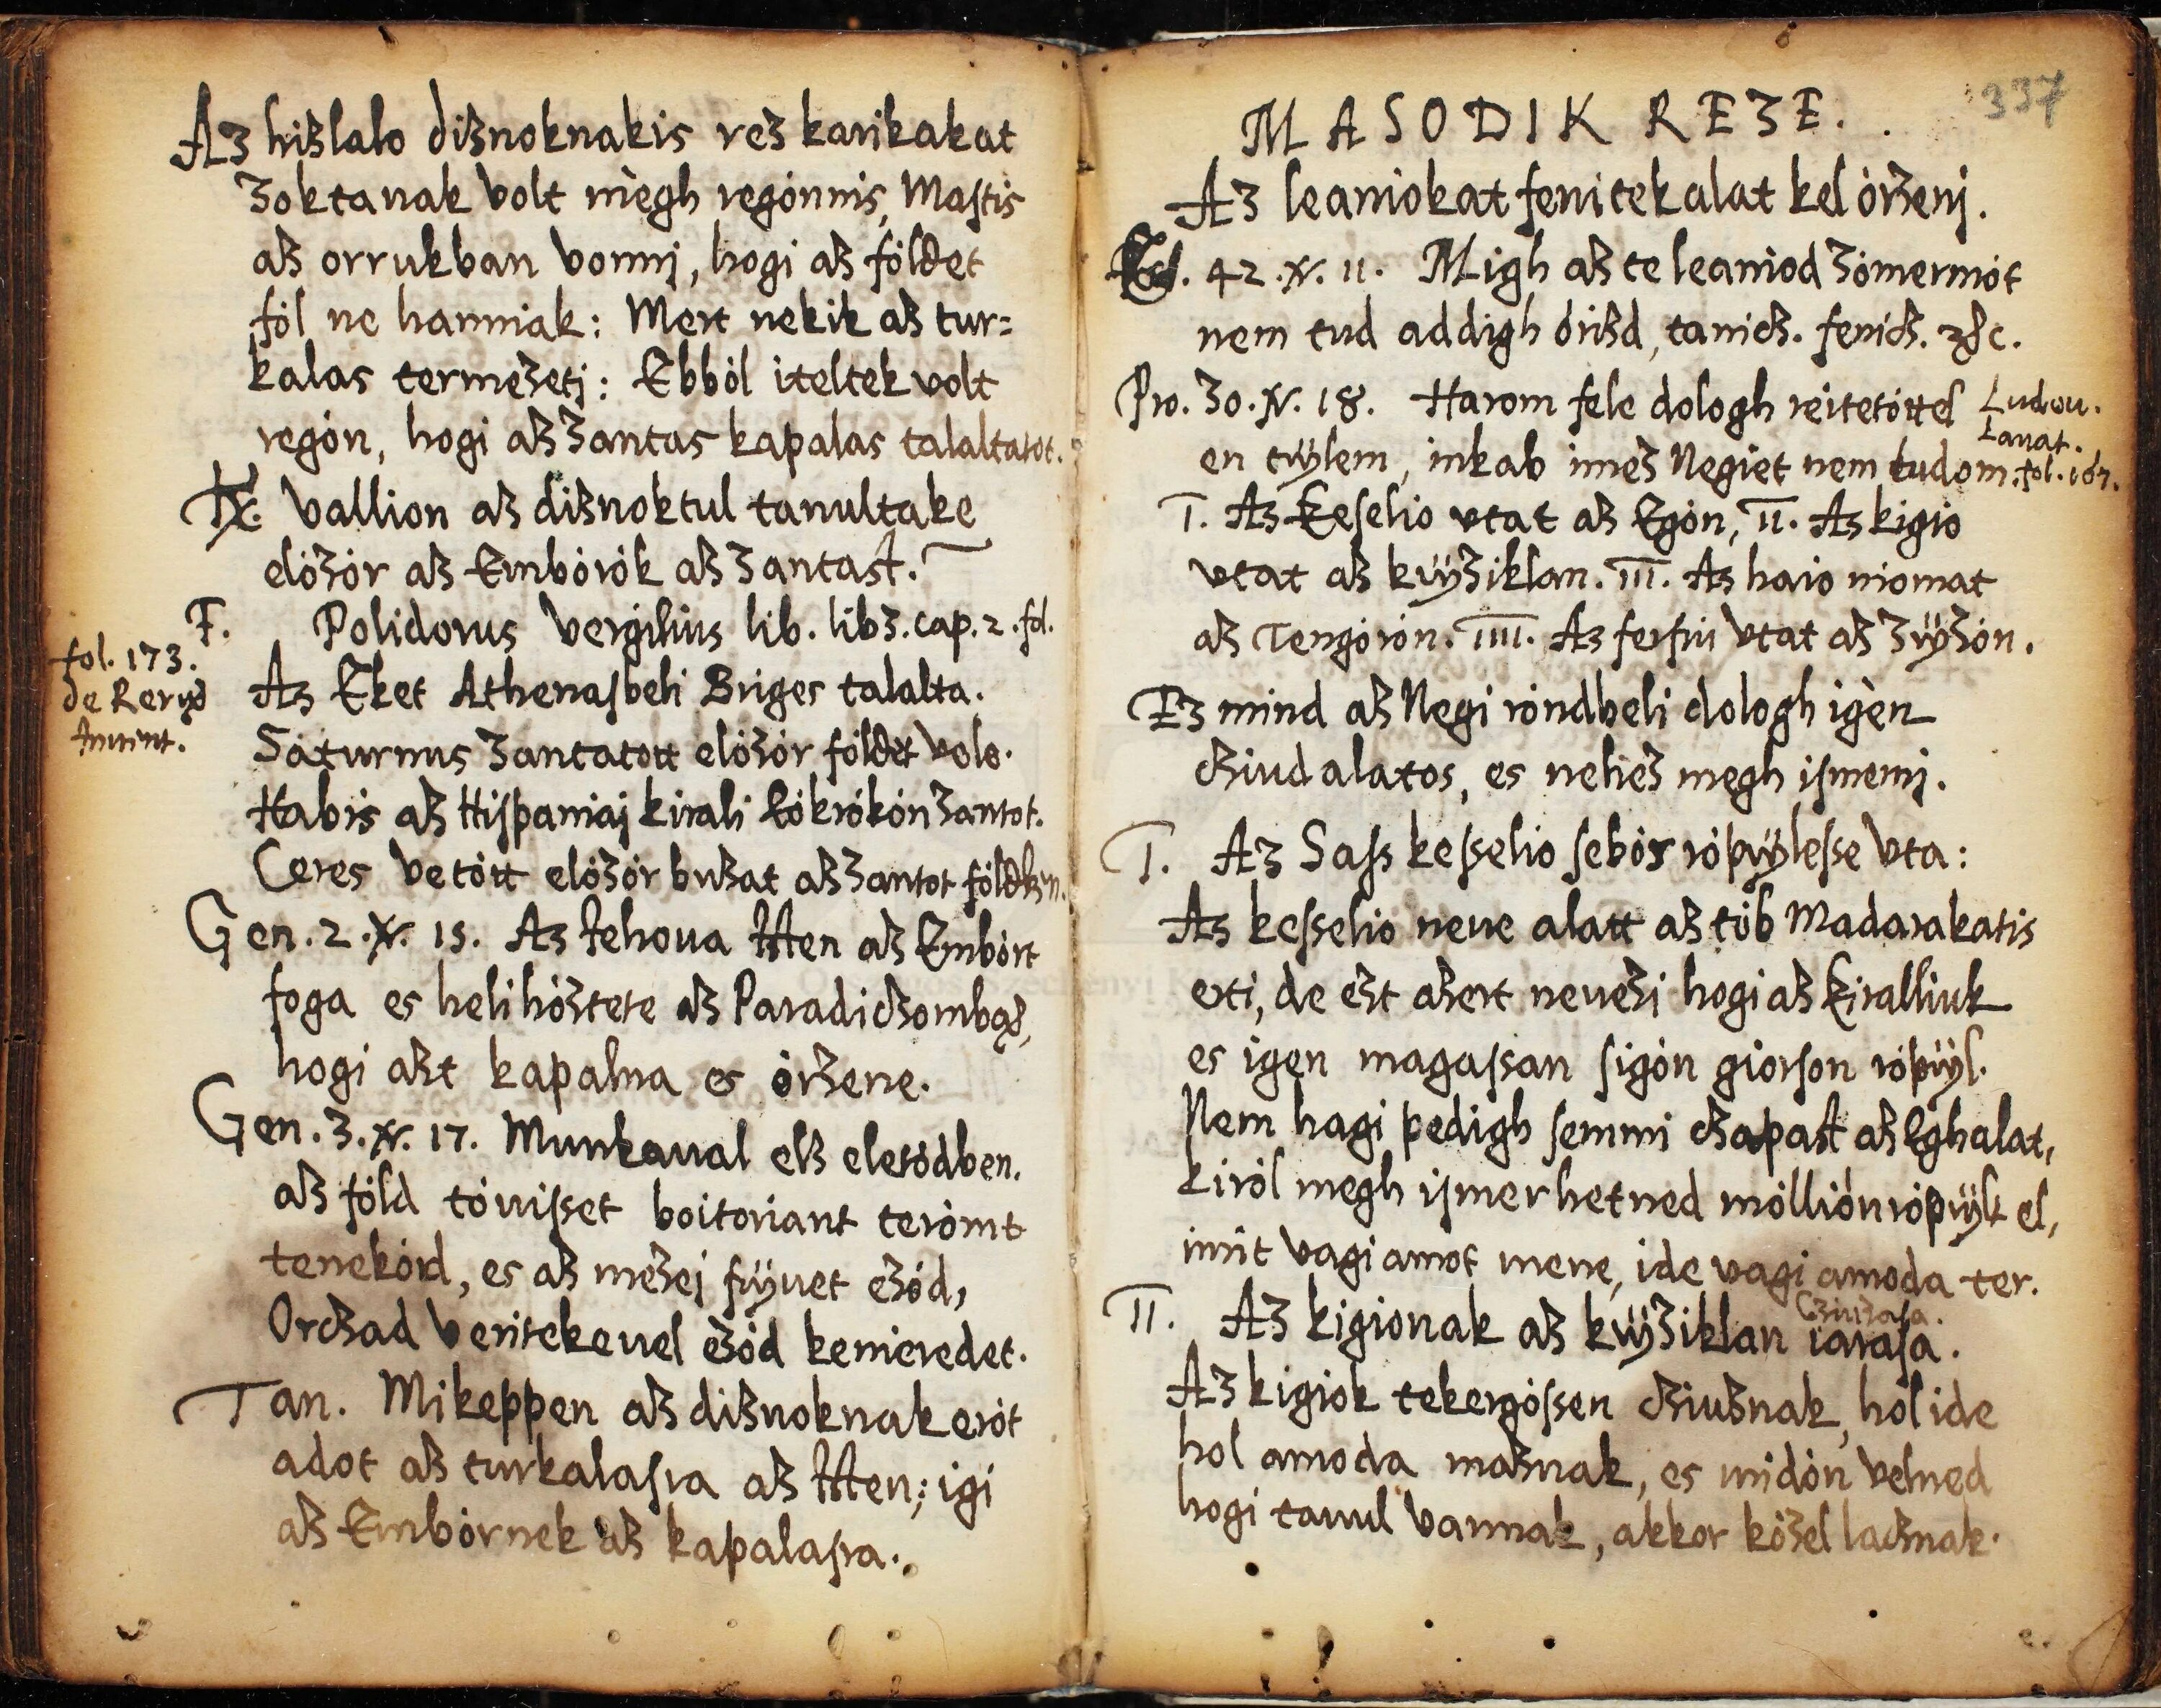 Aʒ hiʒlalo diʒnoknakis reʒ karikakat
ʒoktanak volt mègh regónnis, Maſtis
aʒ orrukban vonnj, hogi aʒ földet
föl ne hanniak: Mert nekik aʒ tur=
kalas termeʒetj: Ebból iteltek volt
regón, hogi aʒ ʒantas kapalas talaltatot.
Vallion aʒ diʒnoktul tanultake
elóʒór aʒ Embórók aʒ ʒantast.
F. Polidorus Vergilius lib. lib3. cap. 2. fol.
fol. 173.
de Rerum
Inuent.
Aʒ Eket Athenaſbeli Briges talalta.
Saturnus ʒantatott elóʒór földet vele.
Habis aʒ Hiſpaniaj kirali ókrókón ʒantot.
Ceres vetótt elóʒór buʒat aʒ ʒantot földben.
Gen. 2. ℣. 15. Aʒ Iehoua Iſten aʒ Embórt
foga es helihóʒtete aʒ Paradicʒomban,
hogi aʒt kapalna es órʒene.
Gen. 3. ℣. 17. Munkaual elʒ eletódben.
aʒ föld tóuiſset boitoriant terómt
tenekórd, es aʒ meʒej fÿuet eʒód,
Orcʒad veritekeuel eʒód kenieredet.
Tan. Mikeppen aʒ diʒnoknak erót
adot aʒ turkalaſra aʒ Iſten; igi
aʒ Embórnek aʒ kapalaſra.
337
MASODIK REʒE.
Aʒ leaniokat fenitek alat kel órʒenj.
42. ℣. 11. Migh aʒ te leaniod ʒómermót
nem tud addigh óriʒd, tanicʒ. fenicʒ. &c.
Pro. 30. ℣. 18. Harom fele dologh reitetóttel
Ludou.
Lauat.
fol. 167.
en tÿlem, inkab imeʒ Negiet nem tudom.
I. Aʒ Keſelio vtat aʒ Egón, II. Aʒ kigio
vtat aʒ kÿʒiklan. III. Aʒ haio niomat
aʒ Tengórón. IIII. Aʒ ferfiu vtat aʒ ʒÿʒón.
Eʒ mind aʒ Negi róndbeli dologh igèn
cʒiudalatos, es neheʒ megh iſmernj.
I. Aʒ Saſs keſselio ſebós rópÿleſse vta:
Aʒ keſselio neue alatt aʒ tób Madarakatis
erti, de eʒt aʒert neueʒi hogi aʒ kiralliuk
es igen magaſsan ſigón giorſon rópÿl.
Nem hagi pedigh ſemmi cʒapaſt aʒ Egh alat,
kiról megh iſmerhetned móllión rópÿlt el,
imit vagi amot mene, ide vagi amoda ter.
II. Aʒ kigionak aʒ kÿʒiklan iaraſa.
Cʒiuʒaſa.
Aʒ kigiok tekergóſsen cʒiuʒnak, hol ide
hol amoda maʒnak, es midón velned
hogi tauul vannak, akkor kóʒel lacʒnak.